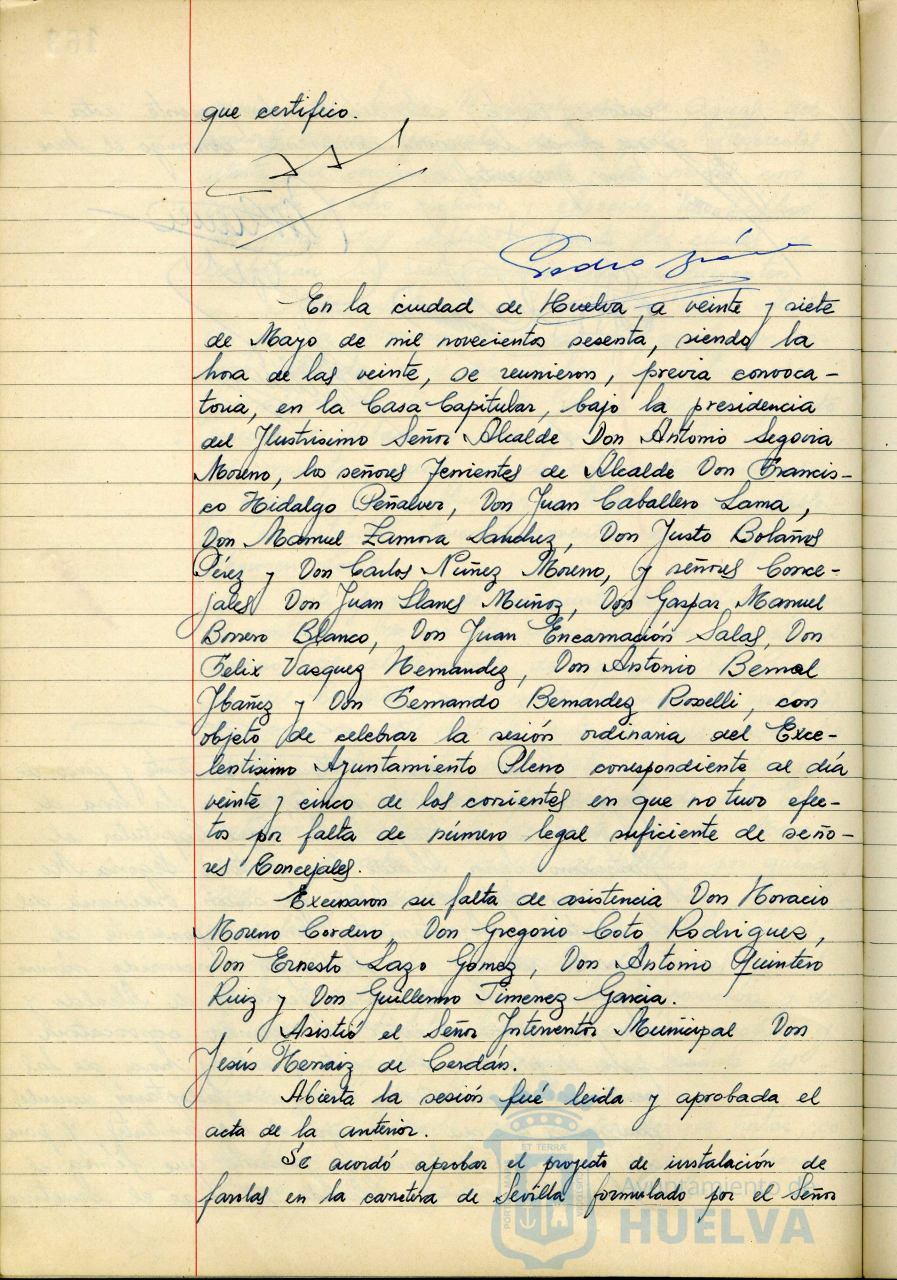 que certifico.
Pedro
En la ciudad de Huelva, a veinte y siete
de Mayo de mil novecientos sesenta, siendo la
hora de las veinte, se reunieron, previa convoca-
toria, en la Casa Capitular, bajo la presidencia
del Ilustrisimo Señor Alcalde Don Antonio Segovia
Moreno, los señores Tenientes de Alcalde Don Francis-
co Hidalgo Peñalver, Don Juan Caballero Lama,
Don Manuel Zamora Sanchez, Don Justo Bolaños
Pérez y Don Carlos Núñez Moreno, y señores Conce-
jales Don Juan Llanes Muñoz, Don Gaspar Manuel
Borrero Blanco, Don Juan Encarnación Salas, Don
Felix Vazquez Hernandez, Don Antonio Bernal
Ibañez y Don Fernando Bernardez Roselli, con
objeto de celebrar la sesión ordinaria del Exce-
lentisimo Ayuntamiento Pleno correspondiente al día
veinte y cinco de los corrientes en que no tuvo efec-
tos por falta de número legal suficiente de seño-
res Concejales.
Excusaron su falta de asistencia Don Horacio
Moreno Cordero, Don Gregorio Coto Rodriguez,
Don Ernesto Lazo Gomez, Don Antonio Quintero
Ruiz y Don Guillermo Jimenez Garcia.
Asistió el Señor Interventor Municipal Don
Jesús Hernaiz de Cerdán.
Abierta la sesión fué leida y aprobada el
acta de la anterior.
Se acordó aprobar el proyecto de instalación de
farolas en la carretera de Sevilla formulado por el Señor
Ayuntamiento de
HUELVA